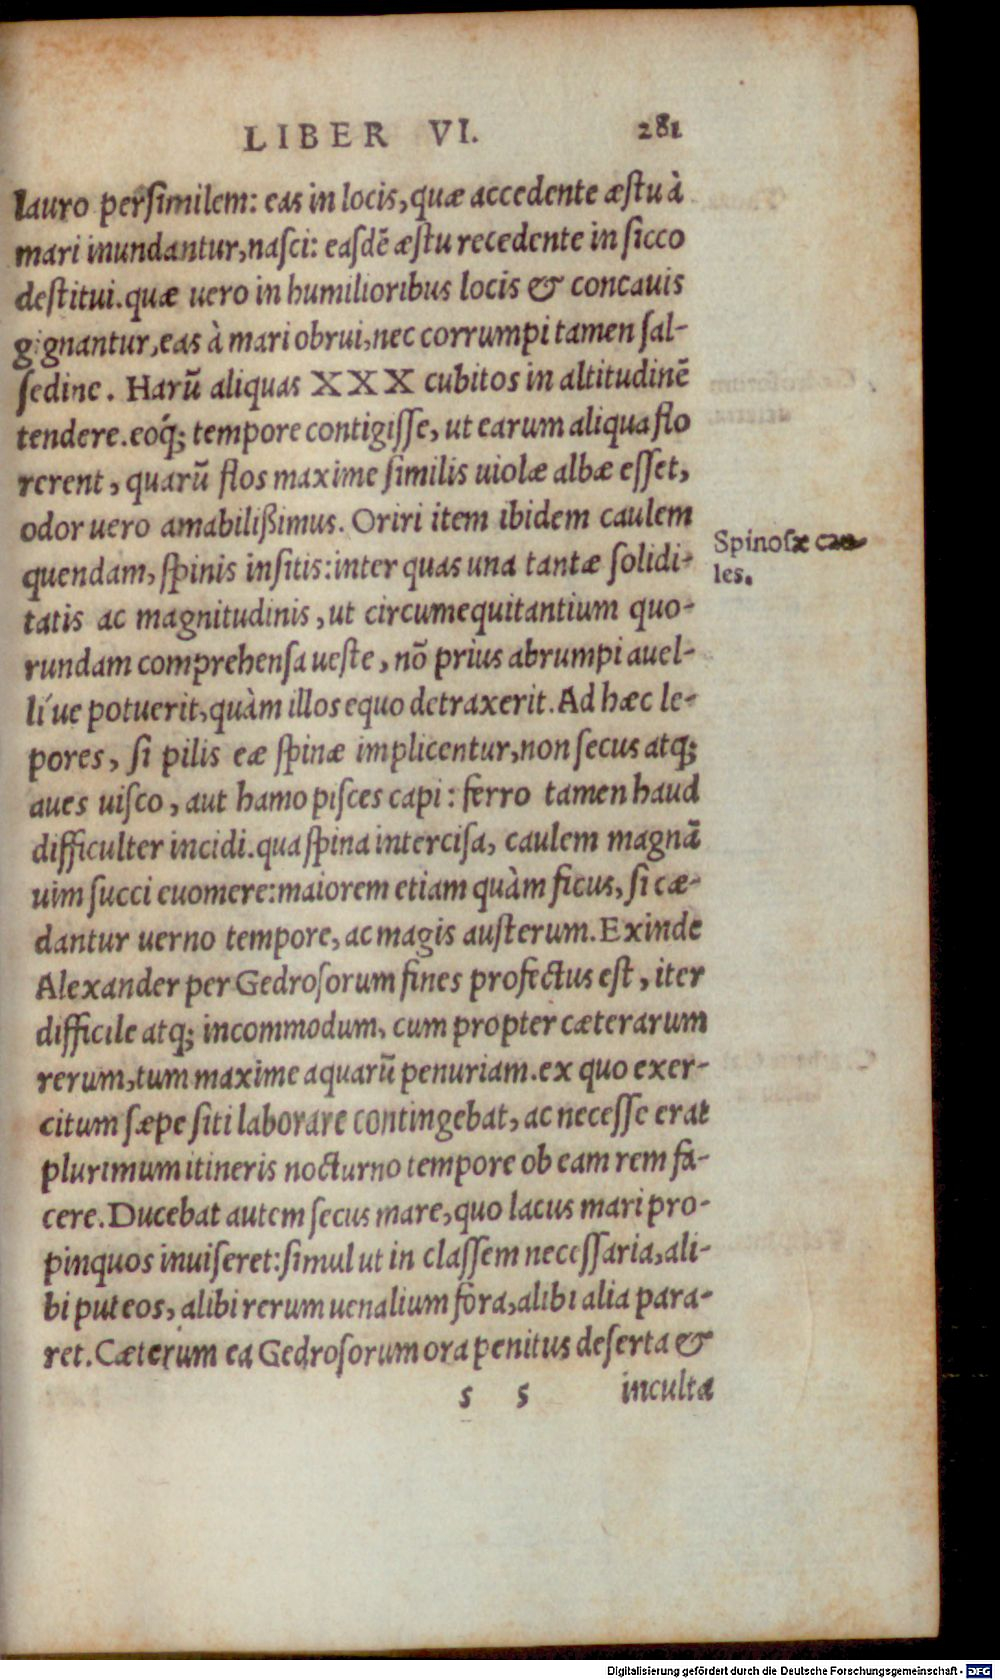 LIBER VI. 281
lauro perſimilem: eas in locis, quæ accedente æſtu à
mari inundantur, naſci: eaſdē æſtu recedente in ſicco
deſtitui. quæ uero in humilioribus locis & concauis
gignantur, eas à mari obrui, nec corrumpi tamen ſal-
ſedine. Harū aliquas XXX cubitos in altitudinē
tendere. eoq́; tempore contigiſſe, ut earum aliqua flo
rerent, quarū flos maxime ſimilis uiolæ albæ eſſet,
odor uero amabilißimus. Oriri item ibidem caulem
quendam, ſpinis inſitis: inter quas una tantæ ſolidi-
tatis ac magnitudinis, ut circumequitantium quo-
rundam comprehenſa ueſte, nō prius abrumpi auel-
li´ue potuerit, quàm illos equo detraxerit. Ad hæc le-
pores, ſi pilis eæ ſpinæ implicentur, non ſecus atq;
aues uiſco, aut hamo piſces capi: ferro tamen haud
difficulter incidi. qua ſpina interciſa, caulem magnā
uim ſucci euomere: maiorem etiam quàm ficus, ſi cæ-
dantur uerno tempore, ac magis auſterum. Exinde
Alexander per Gedroſorum fines profectus eſt, iter
difficile atq; incommodum, cum propter cæterarum
rerum, tum maxime aquarū penuriam. ex quo exer-
citum ſæpe ſiti laborare contingebat, ac neceſſe erat
plurimum itineris nocturno tempore ob eam rem fa-
cere. Ducebat autem ſecus mare, quo lacus mari pro-
pinquos inuiſeret: ſimul ut in claſſem neceſſaria, ali-
bi puteos, alibi rerum uenalium fora, alibi alia para-
ret. Cæterum ea Gedroſorum ora penitus deſerta &
s 5 inculta
Spinoſæ cau-
les.
Digitalisierung gefördert durch die Deutsche Forschungsgemeinschaft - DFG